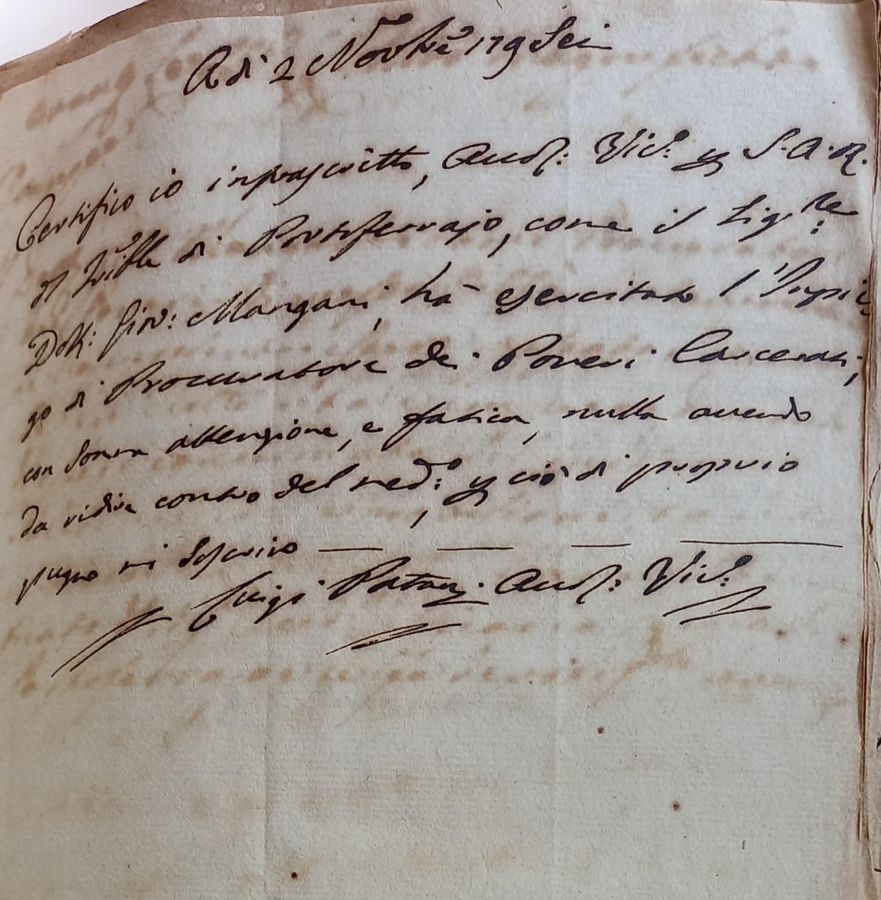 A dì 2 Novbrẽ 179Sei
Certifico io infrascritto, Aud: Vic.º p S. A. R.
di di Portoferrajo, come il Sig.re
Dott: Gio: Mangani, ha esercitato l'Impie
go di Procuratore dei Poveri Carcerati,
con Somma attenzione, e fatica, nulla avendo
da ridire contro del med.º, p ciò di proprio
pugno mi Soscrivo
Luigi Aud: Vic.º